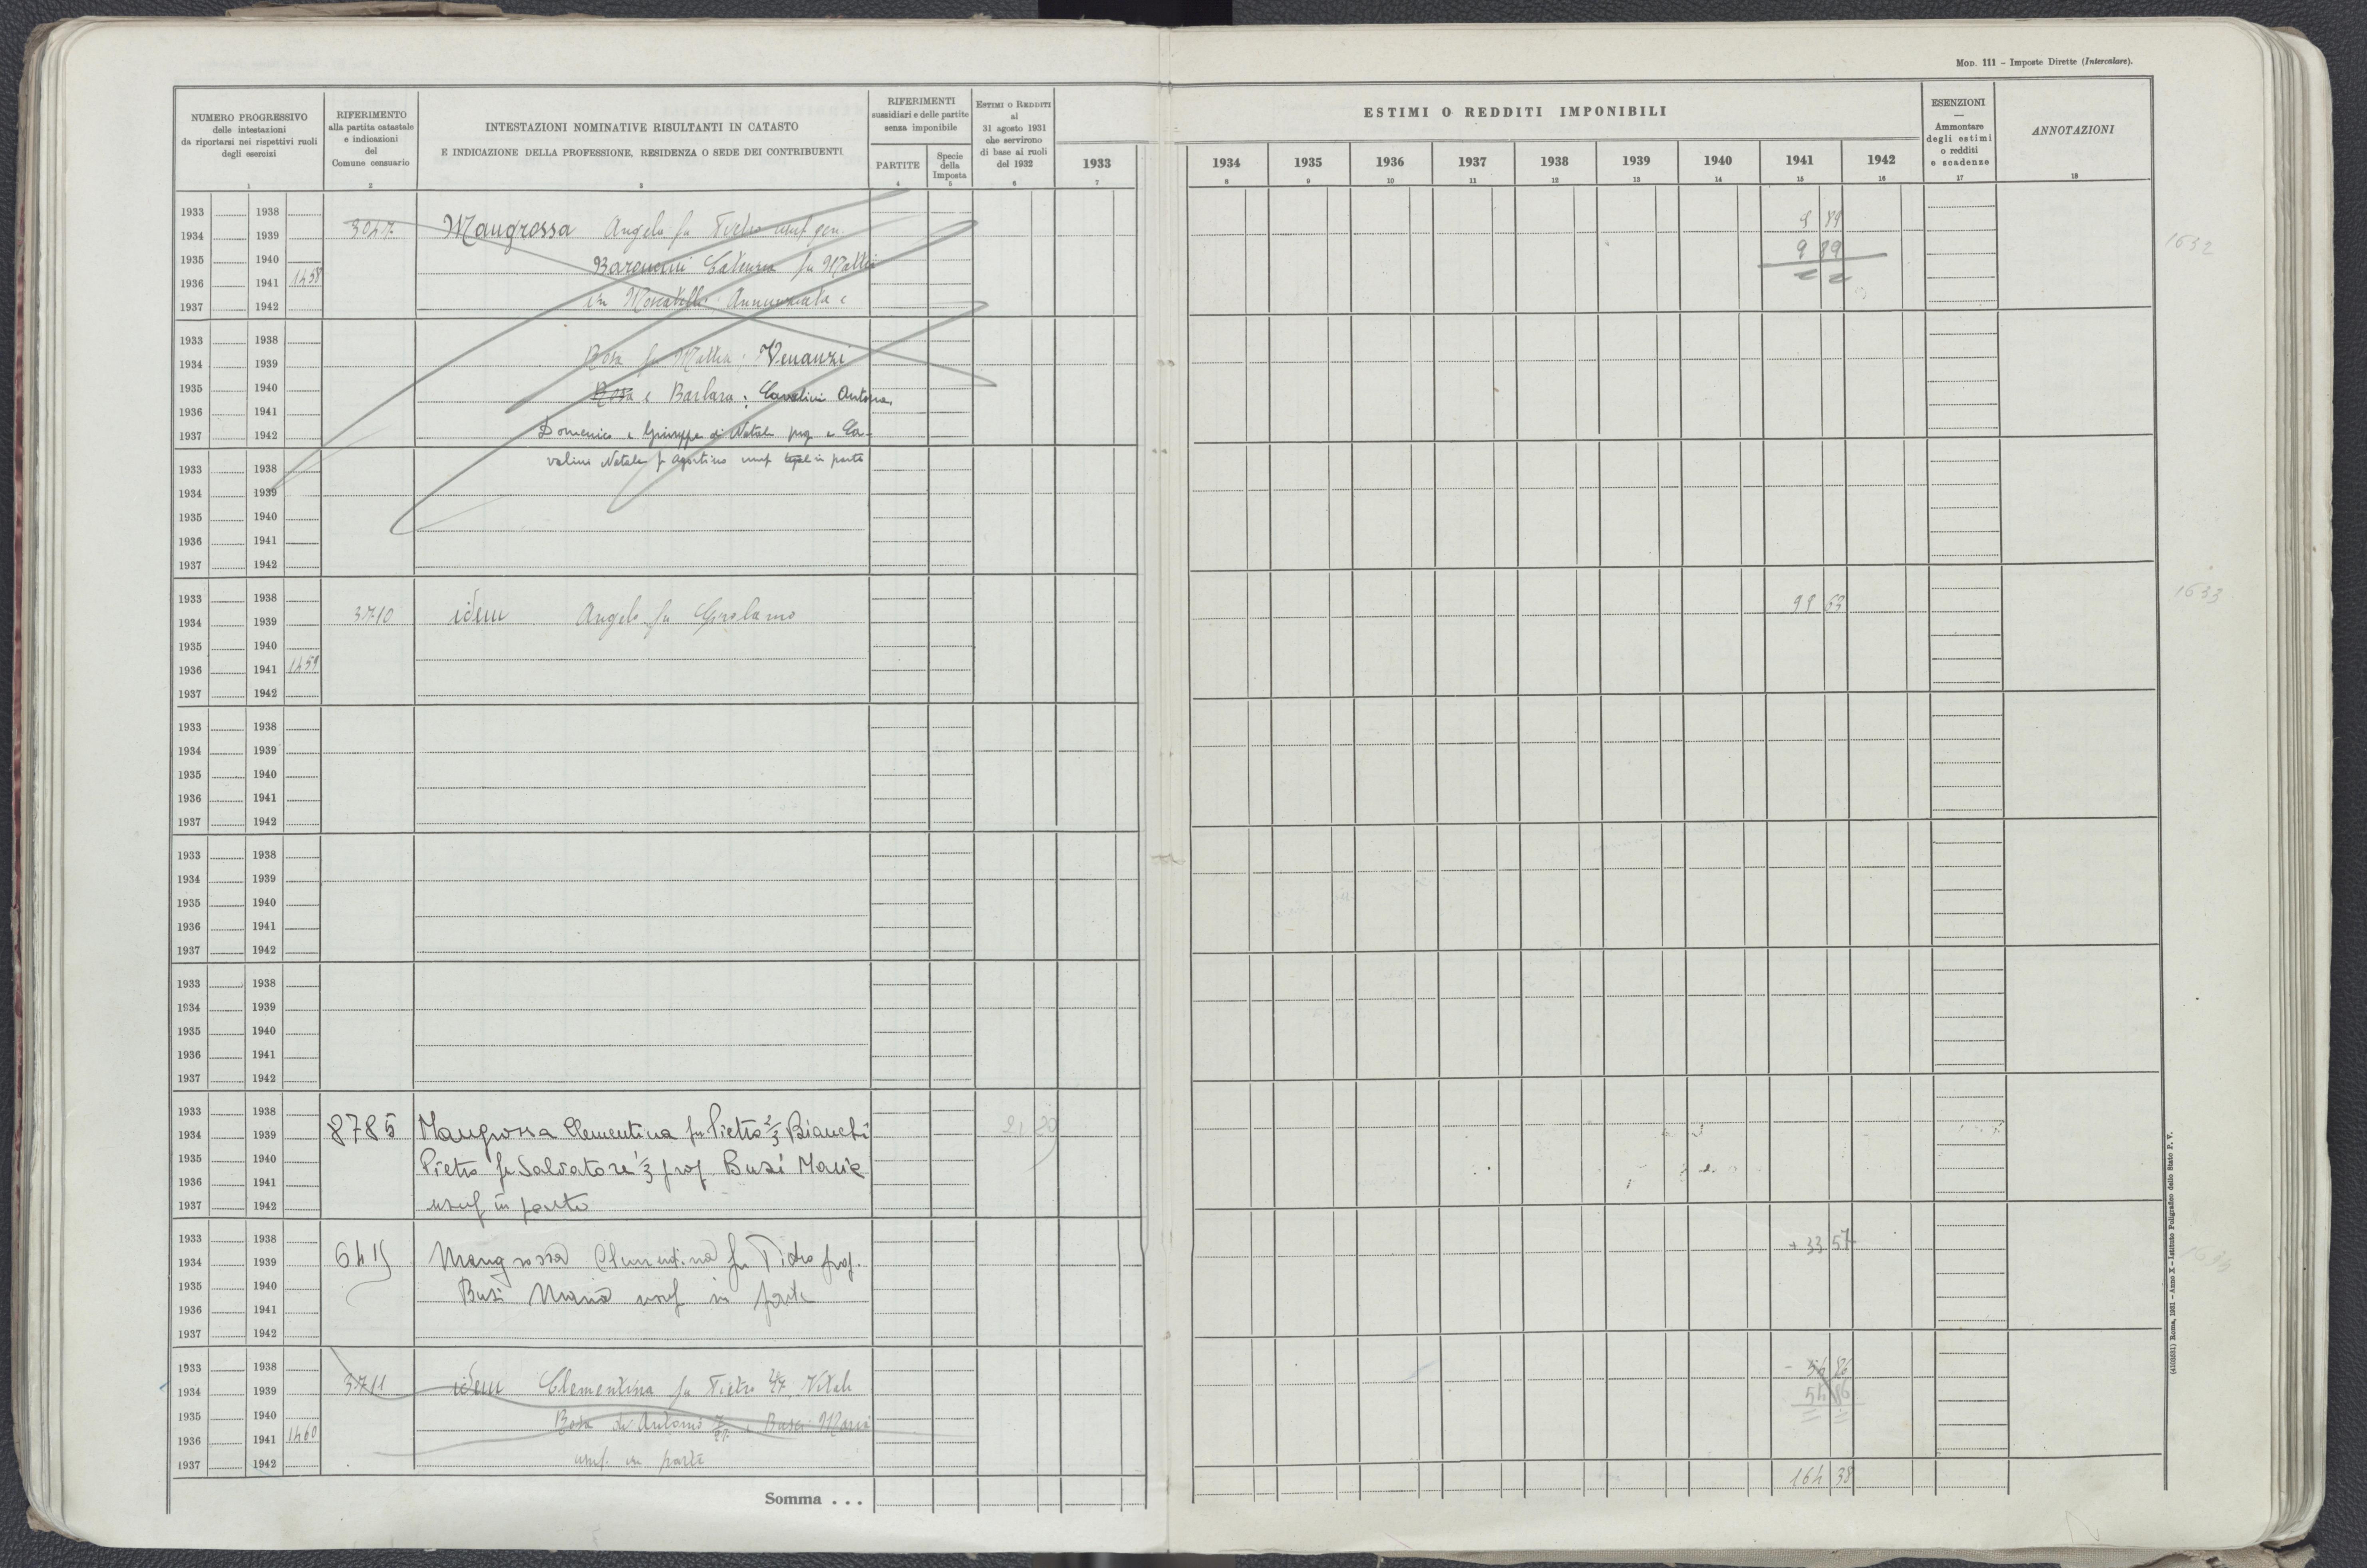 Mod. 111 – Imposte Dirette (Intercalare).
NUMERO PROGRESSIVO
delle intestazioni
da riportarsi nei rispettivi ruoli
degli esercizi
1
RIFERIMENTO
alla partita catastale
e indicazioni
del
Comune censuario
2
INTESTAZIONI NOMINATIVE RISULTANTI IN CATASTO
E INDICAZIONE DELLA PROFESSIONE, RESIDENZA O SEDE DEI CONTRIBUENTI
3
RIFERIMENTI
sussidiari e delle partite
senza imponibile
PARTITE
4
Specie
della
Imposta
5
Estimi o Redditi
al
31 agosto 1931
che servirono
di base ai ruoli
del 1932
6
ESTIMI O REDDITI IMPONIBILI
1933 1934 1935 1936 1937 1938 1939 1940 1941 1942
7 8 9 10 11 12 13 14 15 16
ESENZIONI
—
Ammontare
degli estimi
o redditi
e scadenze
17
ANNOTAZIONI
18
1933 1938
1934 1939 3047 Mangrossa Angelo fu Pietro usuf gen. 9 89 1632
1935 1940 Fu Mattia 9 89
1936 1941 1458
in Moscatelli Annunziata e
1937 1942
1933 1938
1934 1939 Rosa fu Mattia; Venanzi
1935 1940 Rosa e Barbara; Cavalini Antonia,
1936 1941
1937 1942 Domenico e Giuseppe di Natale prop e Ca-
1933 1938 valini Natale fu Agostino usuf legale in parte
1934 1939
1935 1940
1936 1941
1937 1942
1933 1938
1934 1939 3710 idem Angelo fu Girolamo 99 63 1633
1935 1940
1936 1941 1459
1937 1942
1933 1938
1934 1939
1935 1940
1936 1941
1937 1942
1933 1938
1934 1939
1935 1940
1936 1941
1937 1942
1933 1938
1934 1939
1935 1940
1936 1941
1937 1942
1933 1938
1934 1939 8785 Mangrossa Clementina fu Pietro 2/3 Bianchi 21 20
1935 1940 Pietro fu Salvatore 1/3 prop Busi Maria
1936 1941
1937 1942 usuf in parte
1933 1938 + 33 57
1934 1939 6415 Mangrossa Clementina fu Pietro prop.
1935 1940 Busi Maria usuf in parte
1936 1941
1937 1942
1933 1938 - 54 86
1934 1939 3711 idem Clementina fu Pietro Vitali 54 86
1935 1940 Rosa di Antonio e Busi Maria
1936 1941 1460
1937 1942 usuf. in parte
164 38
Somma . . .
(4103551) Roma, 1931 – Anno X – Istituto Poligrafico dello Stato P. V.